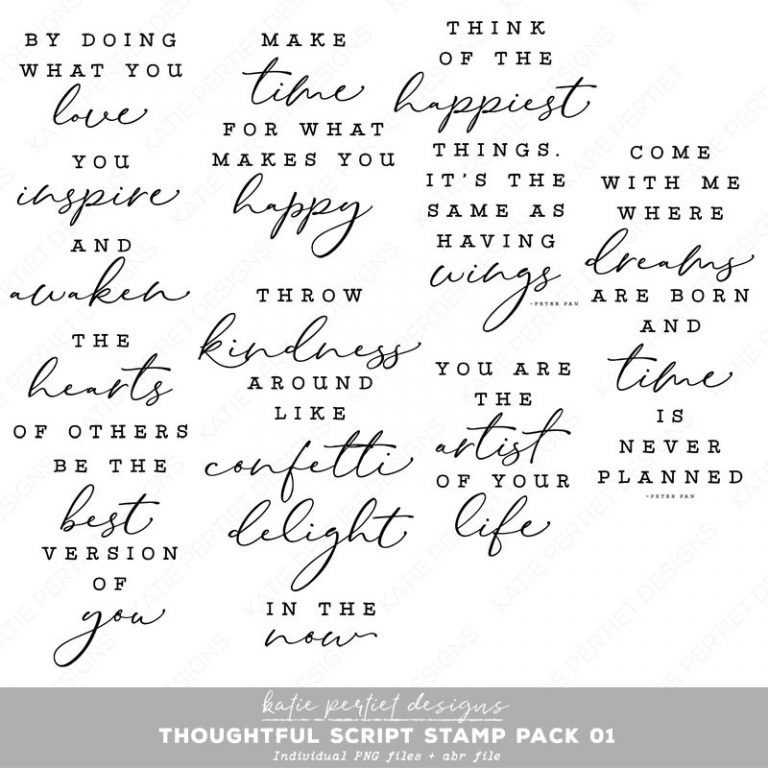 BY DOING
WHAT YOU
love
YOU
inspire
AND
awaken
THE
hearts
OF OTHERS
BE THE
best
VERSION
OF
you
MAKE
time
FOR WHAT
MAKES YOU
happy
THROW
kindness
AROUND
LIKE
confetti
delight
IN THE
now
THINK
OF THE
happiest
THINGS.
IT'S THE
SAME AS
HAVING
wings
-PETER PAN
YOU ARE
THE
artist
OF YOUR
life
COME
WITH ME
WHERE
dreams
ARE BORN
AND
time
IS
NEVER
PLANNED
-PETER PAN
katie pertiet designs
THOUGHTFUL SCRIPT STAMP PACK 01
Individual PNG files + abr file
KATIE PERTIET DESIGNS